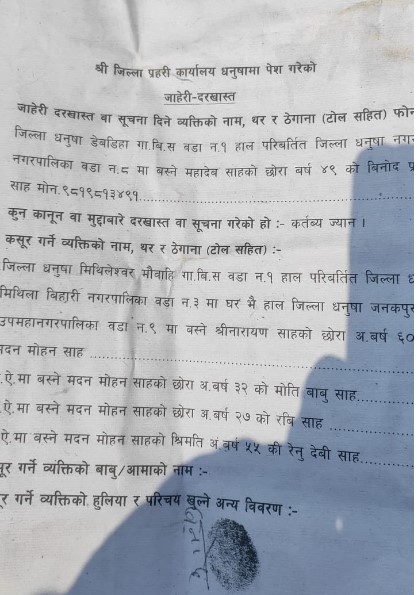 श्री जिल्ला प्रहरी कार्यालय धनुषामा पेश गरेको
जाहेरी-दरखास्त
जाहेरी दरखास्त वा सूचना दिने व्यक्तिको नाम, थर र ठेगाना (टोल सहित) फोन
जिल्ला धनुषा डेबडिहा गा.बि.स वडा न.१ हाल परिबर्तित जिल्ला धनुषा
नगरपालिका वडा न.८ मा बस्ने महादेव साहको छोरा बर्ष ४९ को बिनोद
साह मोन.९८१९८१३४९१
कुन कानून वा मुद्दाबारे दरखास्त वा सूचना गरेको हो :- कर्तव्य ज्यान ।
कसूर गर्ने व्यक्तिको नाम, थर र ठेगाना (टोल सहित) :-
जिल्ला धनुषा मिथिलेश्वर मौवाहि गा.बि.स वडा न.१ हाल परिबर्तित जिल्ला
मिथिला बिहारी नगरपालिका वडा न.३ मा घर भै हाल जिल्ला धनुषा
उपमहानगरपालिका वडा न.९ मा बस्ने श्रीनारायण साहको छोरा अ.बर्ष ६०
मदन मोहन साह
ऐ.मा बस्ने मदन मोहन साहको छोरा अ.बर्ष ३२ को मोति बाबु साह
ऐ.मा बस्ने मदन मोहन साहको छोरा अ.बर्ष २७ को रबि साह
ऐ.मा बस्ने मदन मोहन साहको श्रिमति अ.बर्ष ५५ की रेनु देवी साह
गर्ने व्यक्तिको बाबु/आमाको नाम :-
गर्ने व्यक्तिको हुलिया र परिचय खुल्ने अन्य विवरण :-